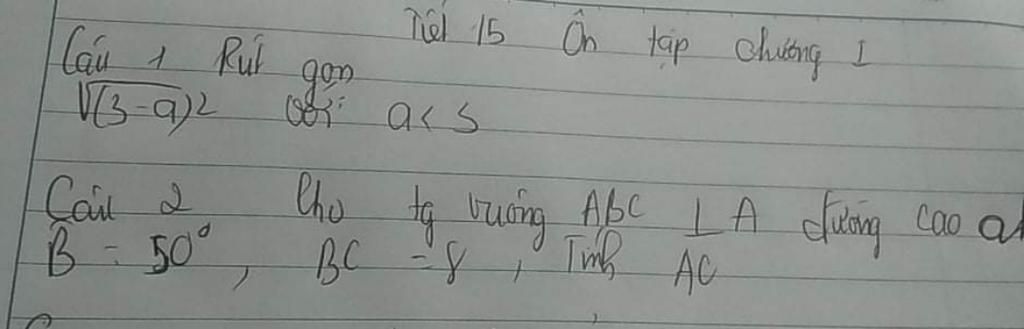 Tiết 15 Ôn tập chương I
Câu 1 Rút gọn
√(3-a)2 với a< 5
Câu 2 Cho tg vuông ABC ⊥ A đường cao
B = 50°, BC = 8, Tính AC